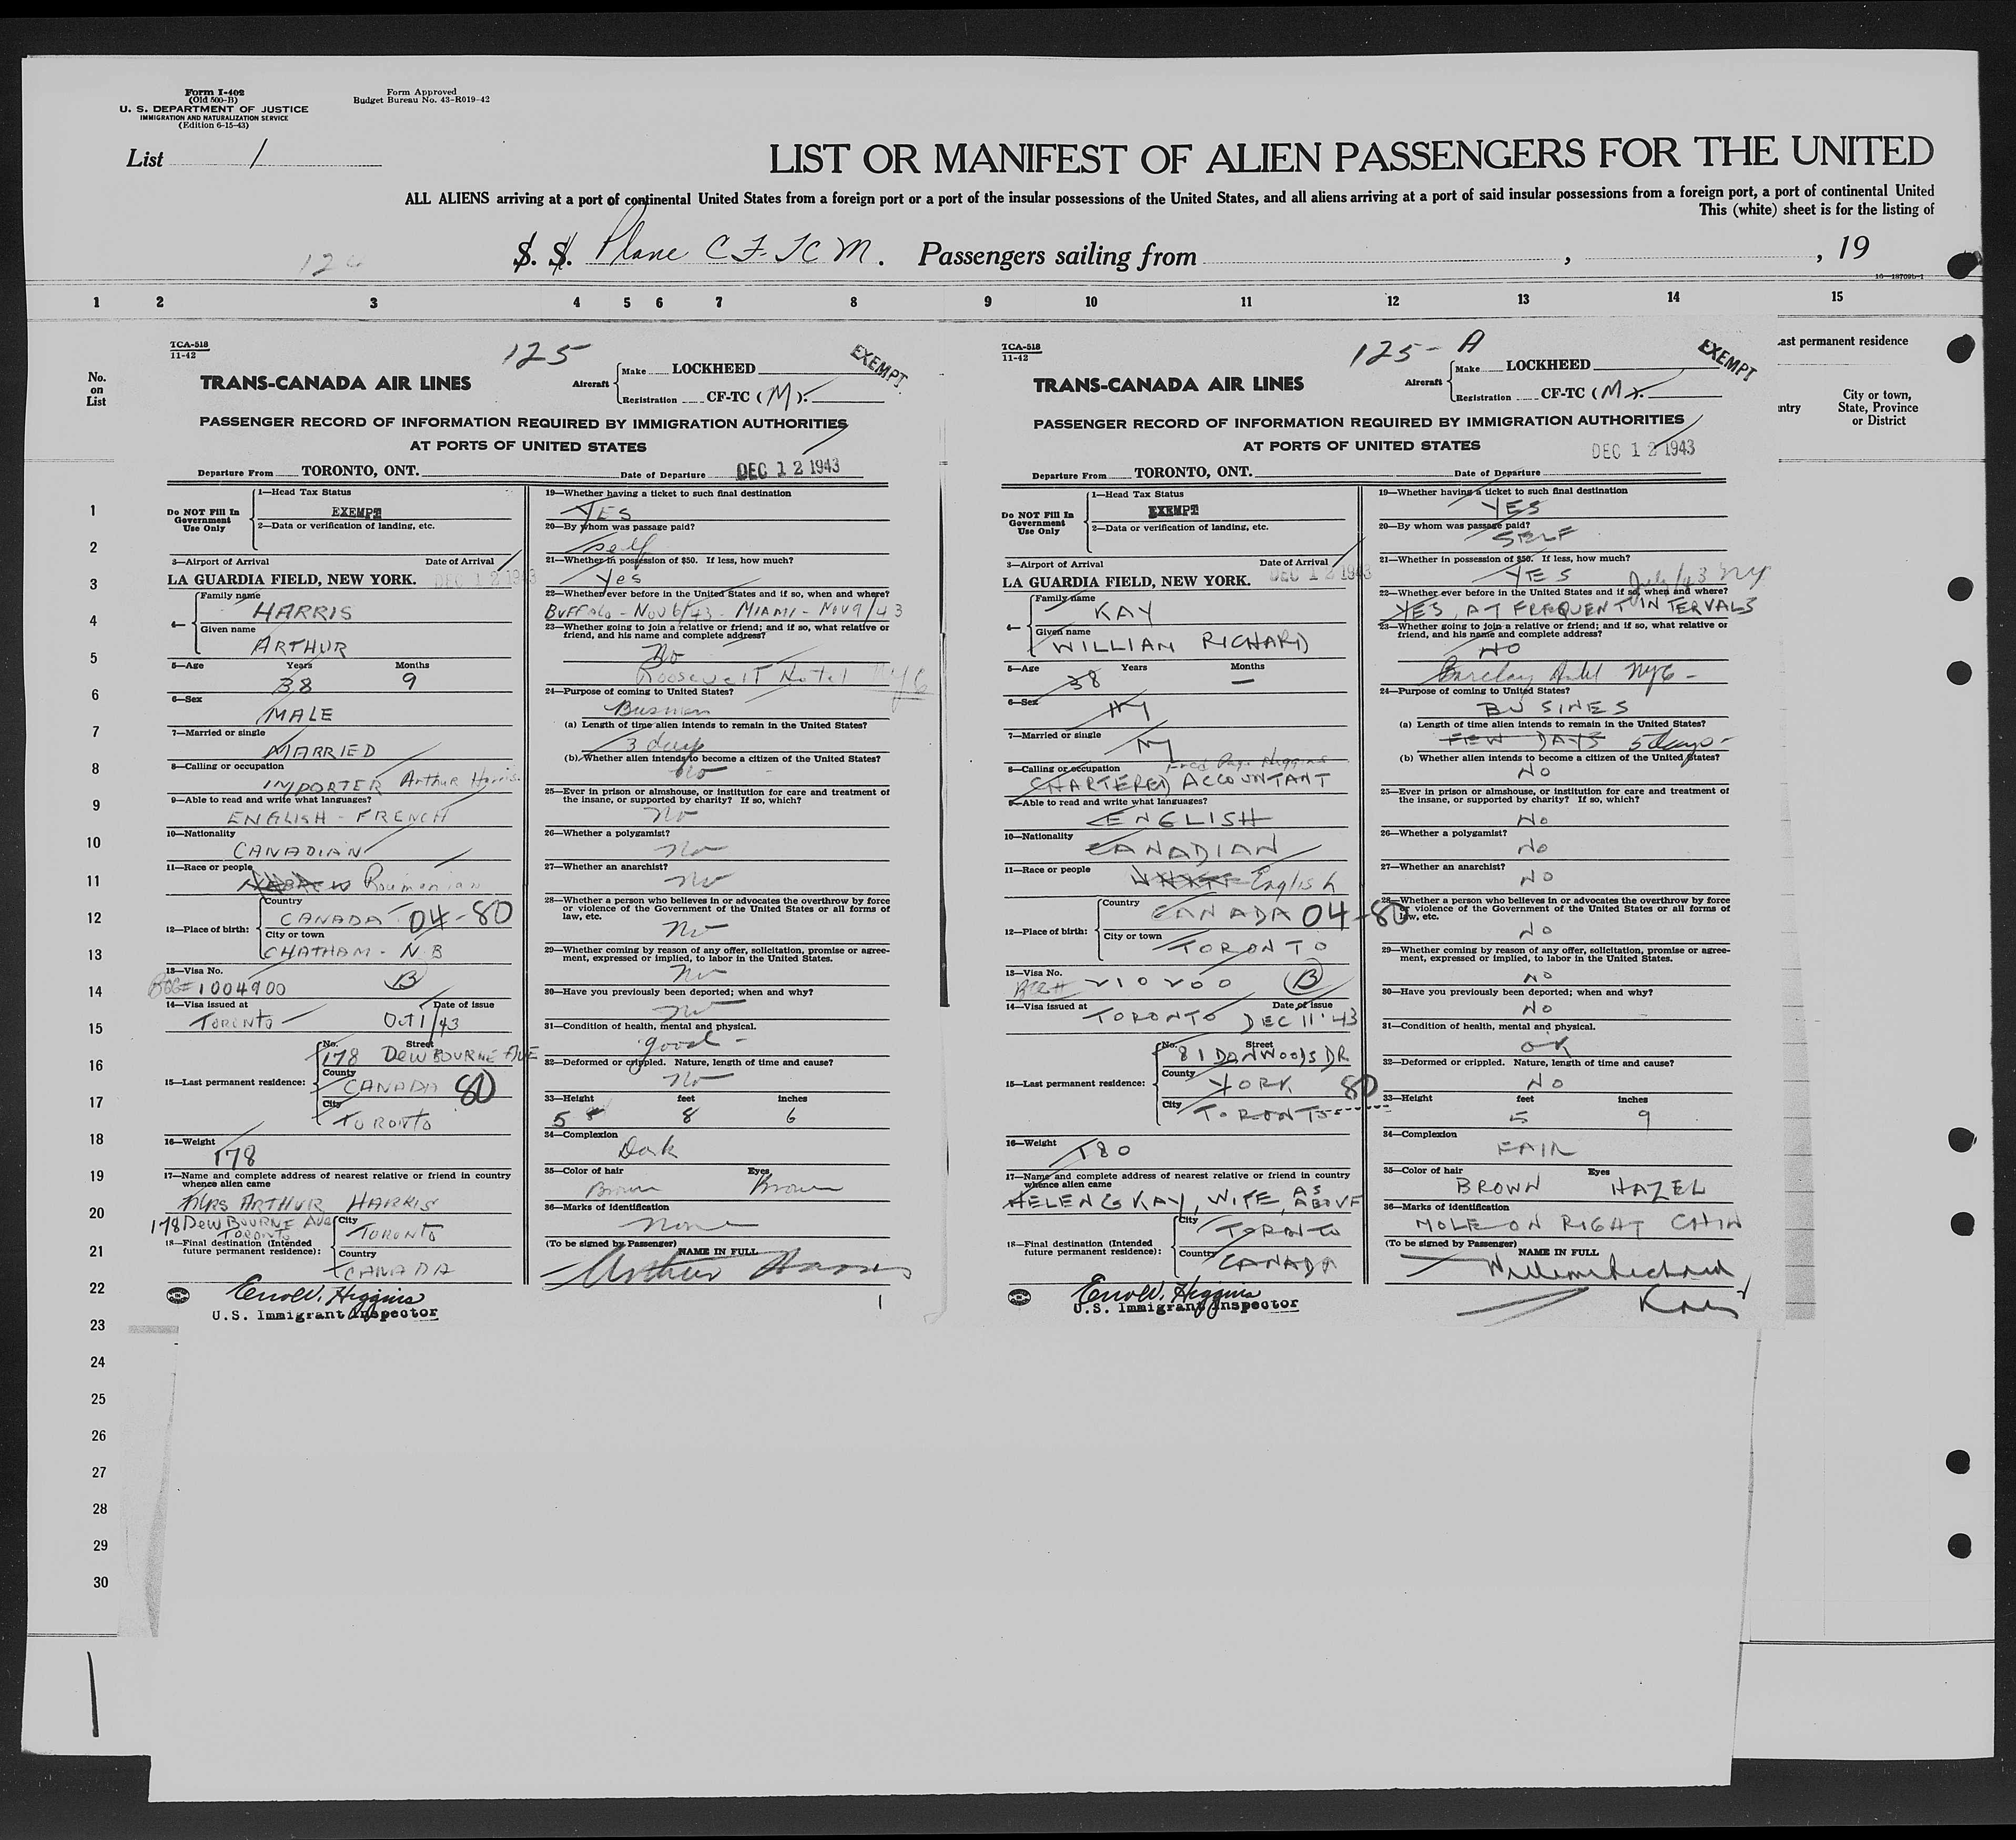 Form I-402
(Old 500-B)
U. S. DEPARTMENT OF JUSTICE
IMMIGRATION AND NATURALIZATION SERVICE
(Edition 6-15-43)
Form Approved
Budget Bureau No. 43-R019-42
List 1
LIST OR MANIFEST OF ALIEN PASSENGERS FOR THE UNITED
ALL ALIENS arriving at a port of continental United States from a foreign port or a port of the insular possessions of the United States, and all aliens arriving at a port of said insular possessions from a foreign port, a port of continental United
This (white) sheet is for the listing of
S. S. Plane CF-TCM. Passengers sailing from , , 19
1 2 3 4 5 6 7 8 9 10 11 12 13 14 15
No.
on
List
1
2
3
4
5
6
7
8
9
10
11
12
13
14
15
16
17
18
19
20
21
22
23
24
25
26
27
28
29
30
TCA-518
11-42
125
EXEMPT
TRANS-CANADA AIR LINES
Aircraft
Make LOCKHEED
Registration CF-TC (M).
PASSENGER RECORD OF INFORMATION REQUIRED BY IMMIGRATION AUTHORITIES
AT PORTS OF UNITED STATES
Departure From TORONTO, ONT. Date of Departure DEC 12 1943
Do NOT Fill In
Government
Use Only
1—Head Tax Status
EXEMPT
2—Data or verification of landing, etc.
3—Airport of Arrival Date of Arrival
LA GUARDIA FIELD, NEW YORK. DEC 12 1943
4—
Family name
HARRIS
Given name
ARTHUR
5—Age Years Months
38 9
6—Sex
MALE
7—Married or single
MARRIED
8—Calling or occupation
IMPORTER Arthur Harris
9—Able to read and write what languages?
ENGLISH - FRENCH
10—Nationality
CANADIAN
11—Race or people
HEBREW Roumanian
12—Place of birth:
Country
CANADA 04-80
City or town
CHATHAM - N B
13—Visa No.
BCC# 1004900 B
14—Visa issued at Date of issue
TORONTO OCT 1/43
15—Last permanent residence:
No. Street
178 DEWBOURNE AVE
County
CANADA 80
City
TORONTO
16—Weight
178
17—Name and complete address of nearest relative or friend in country
whence alien came
MRS ARTHUR HARRIS
178 DEWBOURNE AVE
TORONTO
18—Final destination (Intended
future permanent residence):
City
TORONTO
Country
CANADA
U.S. Immigrant Inspector
19—Whether having a ticket to such final destination
YES
20—By whom was passage paid?
self
21—Whether in possession of $50. If less, how much?
yes
22—Whether ever before in the United States and if so, when and where?
BUFFALO - NOV 6/43 - MIAMI - NOV 9/43
23—Whether going to join a relative or friend; and if so, what relative or
friend, and his name and complete address?
No
Roosevelt Hotel NYC
24—Purpose of coming to United States?
Business
(a) Length of time alien intends to remain in the United States?
3 days
(b) Whether alien intends to become a citizen of the United States?
No
25—Ever in prison or almshouse, or institution for care and treatment of
the insane, or supported by charity? If so, which?
No
26—Whether a polygamist?
No
27—Whether an anarchist?
No
28—Whether a person who believes in or advocates the overthrow by force
or violence of the Government of the United States or all forms of
law, etc.
No
29—Whether coming by reason of any offer, solicitation, promise or agree-
ment, expressed or implied, to labor in the United States.
No
30—Have you previously been deported; when and why?
No
31—Condition of health, mental and physical.
good -
32—Deformed or crippled. Nature, length of time and cause?
No
33—Height feet inches
5 8 6
34—Complexion
Dark
35—Color of hair Eyes
Brown Brown
36—Marks of identification
None
(To be signed by Passenger) NAME IN FULL
Arthur Harris
1
TCA-518
11-42
125-A
EXEMPT
TRANS-CANADA AIR LINES
Aircraft
Make LOCKHEED
Registration CF-TC (M).
PASSENGER RECORD OF INFORMATION REQUIRED BY IMMIGRATION AUTHORITIES
AT PORTS OF UNITED STATES
DEC 12 1943
Departure From TORONTO, ONT. Date of Departure
Do NOT Fill In
Government
Use Only
1—Head Tax Status
EXEMPT
2—Data or verification of landing, etc.
3—Airport of Arrival Date of Arrival
LA GUARDIA FIELD, NEW YORK. DEC 12 1943
4—
Family name
KAY
Given name
WILLIAM RICHARD
5—Age Years Months
38 —
6—Sex
M
7—Married or single
M
8—Calling or occupation
CHARTERED ACCOUNTANT
9—Able to read and write what languages?
ENGLISH
10—Nationality
CANADIAN
11—Race or people
WHITE English
12—Place of birth:
Country
CANADA 04-80
City or town
TORONTO
13—Visa No.
BCC# 210200 B
14—Visa issued at Date of issue
TORONTO DEC 11 '43
15—Last permanent residence:
No. Street
81 DONWOODS DR
County
YORK 80
City
TORONTO
16—Weight
180
17—Name and complete address of nearest relative or friend in country
whence alien came
HELEN G KAY, WIFE, AS ABOVE
18—Final destination (Intended
future permanent residence):
City
TORONTO
Country
CANADA
U.S. Immigrant Inspector
19—Whether having a ticket to such final destination
YES
20—By whom was passage paid?
SELF
21—Whether in possession of $50. If less, how much?
YES July/43 NY
22—Whether ever before in the United States and if so, when and where?
YES, AT FREQUENT INTERVALS
23—Whether going to join a relative or friend; and if so, what relative or
friend, and his name and complete address?
NO
Barclay Hotel NYC -
24—Purpose of coming to United States?
BUSINES
(a) Length of time alien intends to remain in the United States?
FEW DAYS 5 days -
(b) Whether alien intends to become a citizen of the United States?
NO
25—Ever in prison or almshouse, or institution for care and treatment of
the insane, or supported by charity? If so, which?
NO
26—Whether a polygamist?
NO
27—Whether an anarchist?
NO
28—Whether a person who believes in or advocates the overthrow by force
or violence of the Government of the United States or all forms of
law, etc.
NO
29—Whether coming by reason of any offer, solicitation, promise or agree-
ment, expressed or implied, to labor in the United States.
NO
30—Have you previously been deported; when and why?
NO
31—Condition of health, mental and physical.
OK
32—Deformed or crippled. Nature, length of time and cause?
NO
33—Height feet inches
5 9
34—Complexion
FAIR
35—Color of hair Eyes
BROWN HAZEL
36—Marks of identification
MOLE ON RIGHT CHIN
(To be signed by Passenger)
NAME IN FULL
William Richard
Kay
ast permanent residence
ntry
City or town,
State, Province
or District